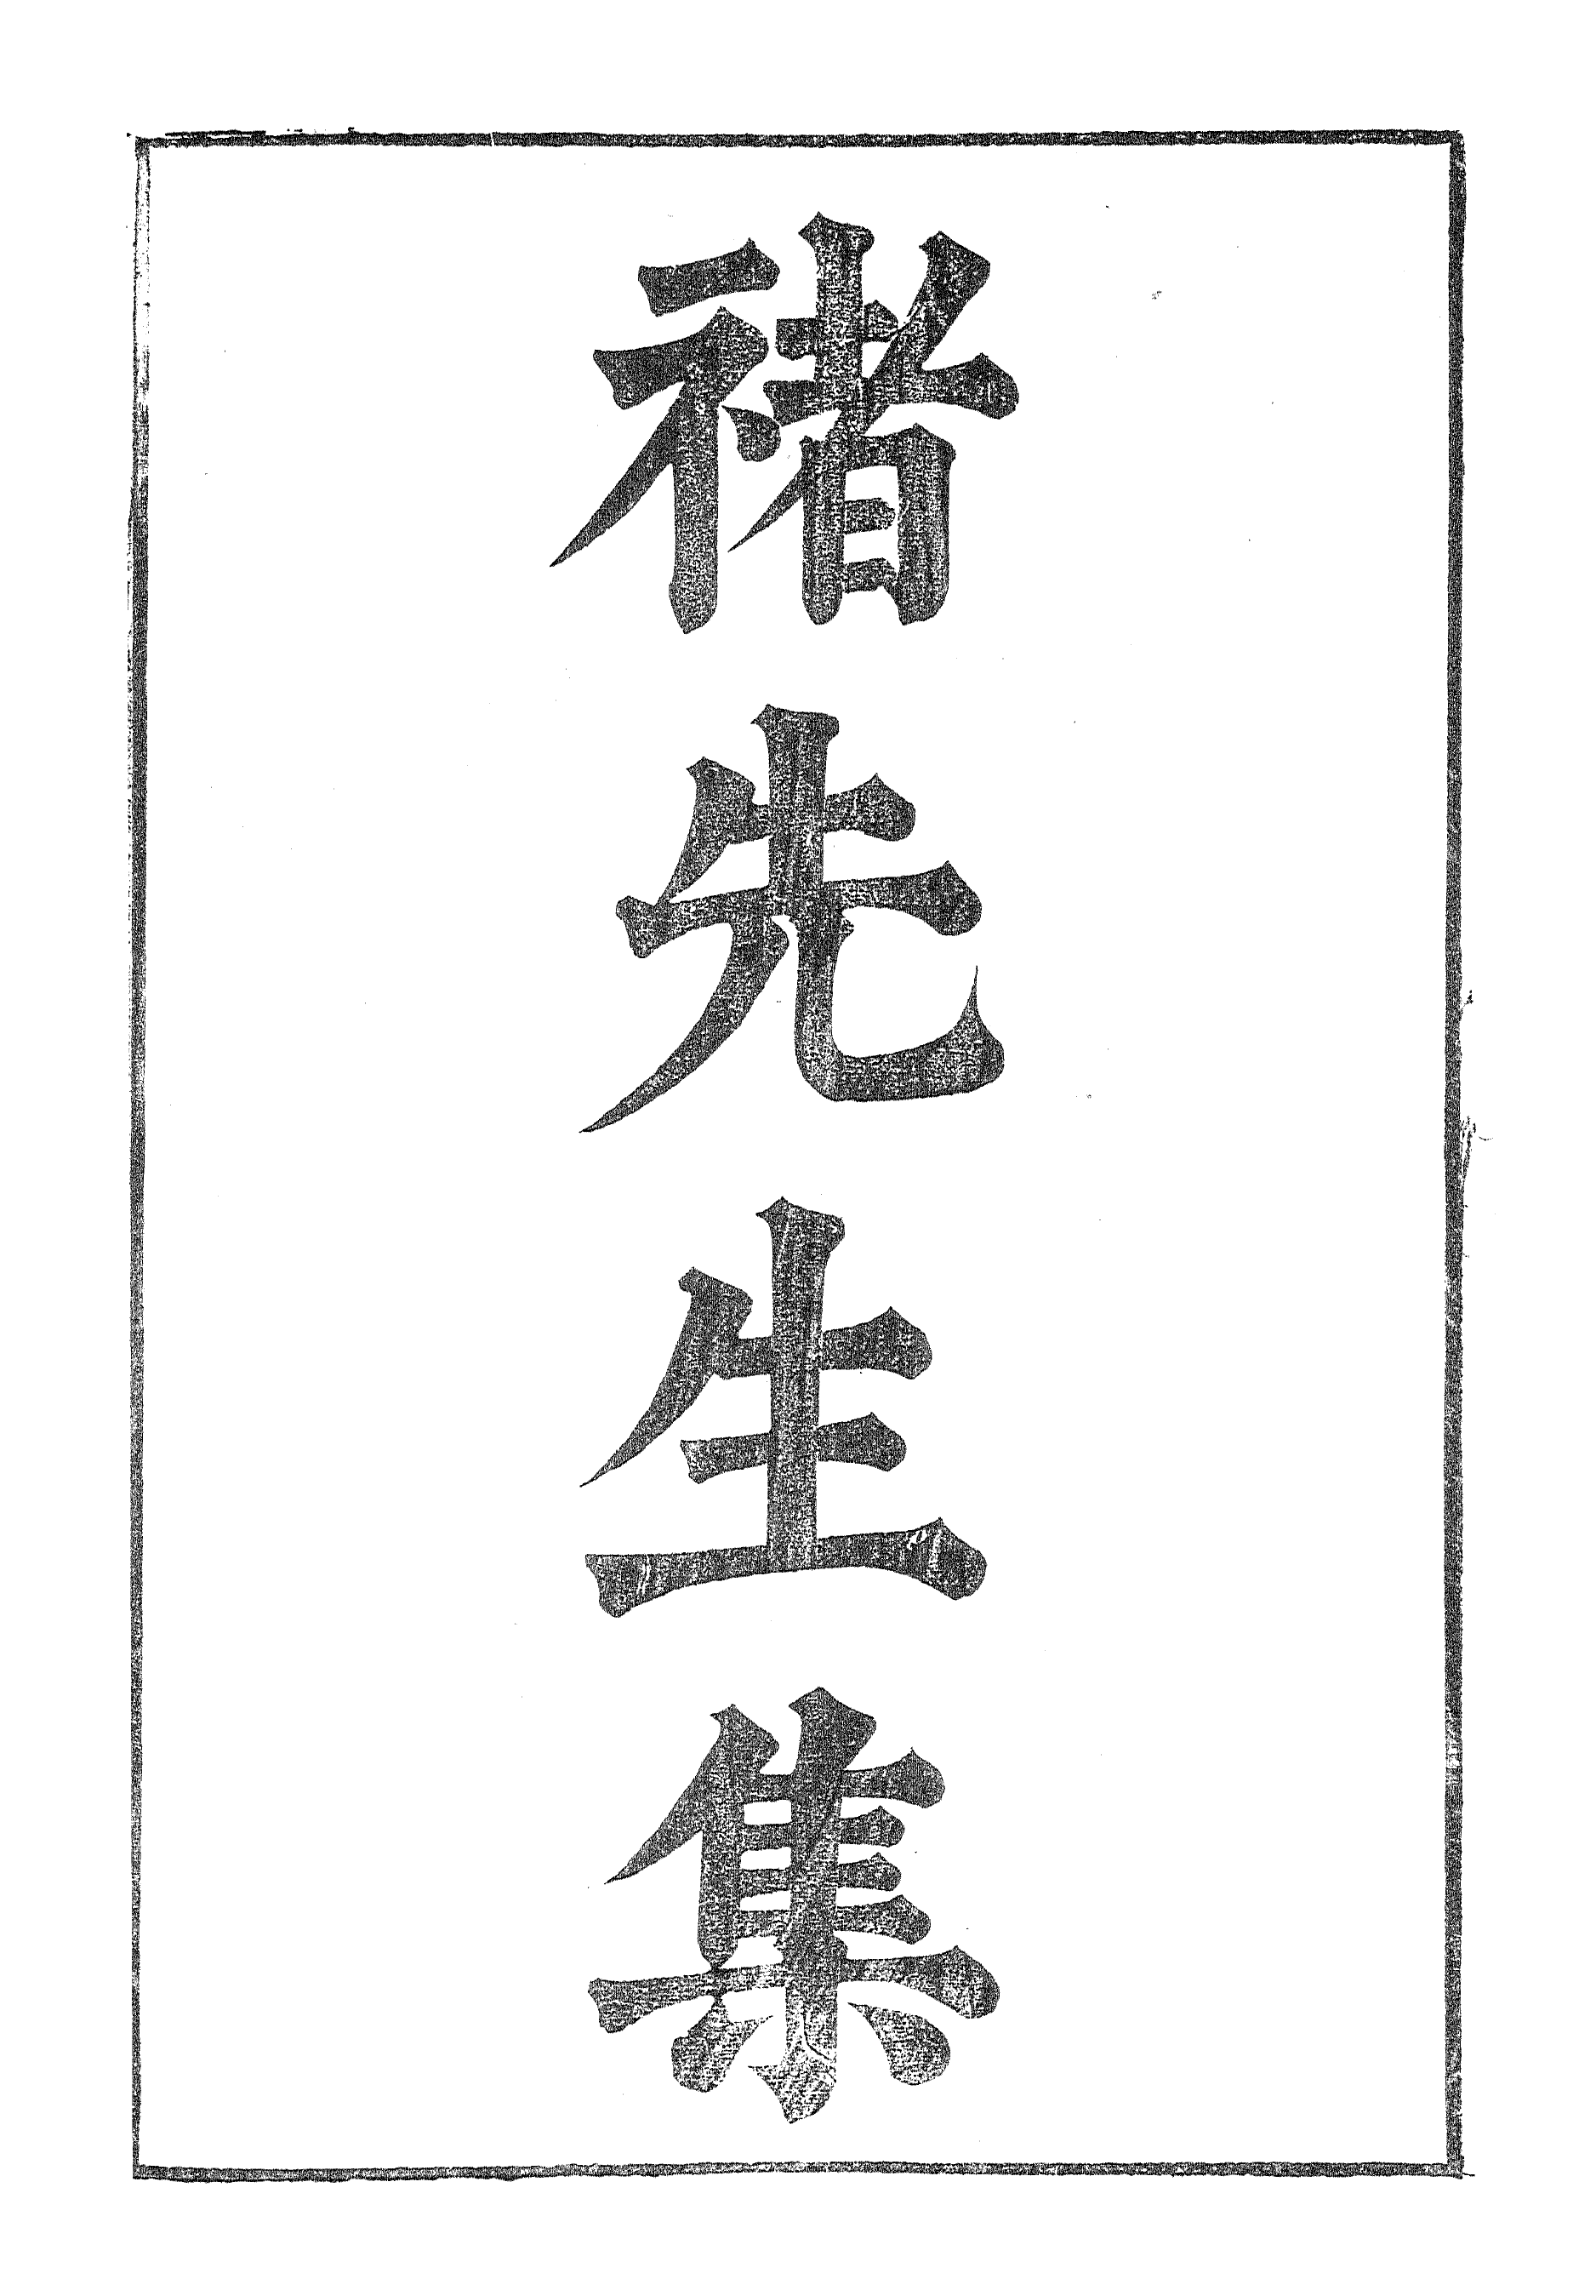 褚先生集